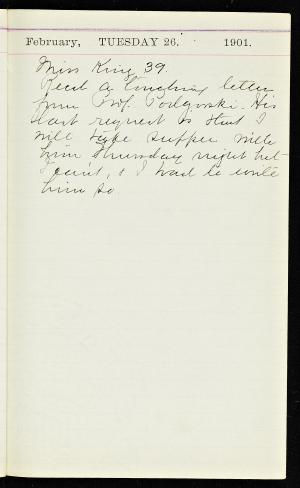 February, TUESDAY 26. 1901.
Miss King 39.
Recd a touching letter
from Prof. Podgorski. His
last request is that I
will take supper with
him Thursday night but
I can't, & I had to write
him so